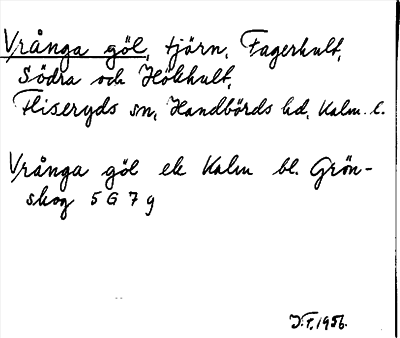 Vrånga göl, tjörn, Fagerhult,
Södra och Hökhult,
Fliseryds sn, Handbörds hd, Kalm. l.
Vrånga göl ek Kalm bl. Grön-
skog 5 G 7 g
J.F. 1956.